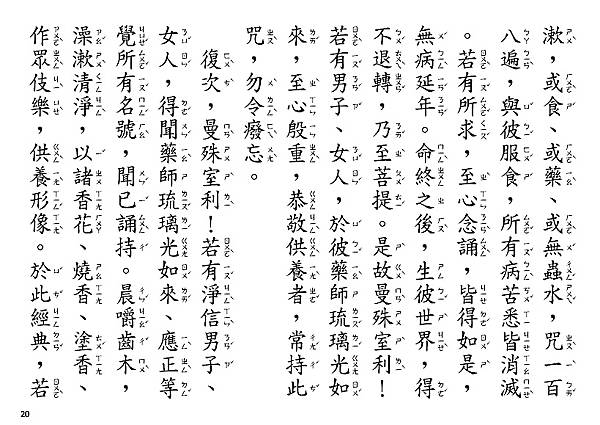 漱，或食、或藥、或無蟲水，咒一百
八遍，與彼服食，所有病苦悉皆消滅
。若有所求，至心念誦，皆得如是，
無病延年。命終之後，生彼世界，得
不退轉，乃至菩提。是故曼殊室利！
若有男子、女人，於彼藥師琉璃光如
來，至心殷重，恭敬供養者，常持此
咒，勿令廢忘。
復次，曼殊室利！若有淨信男子、
女人，得聞藥師琉璃光如來、應正等
覺所有名號，聞已誦持。晨嚼齒木，
澡漱清淨，以諸香花、燒香、塗香、
作眾伎樂，供養形像。於此經典，若
20